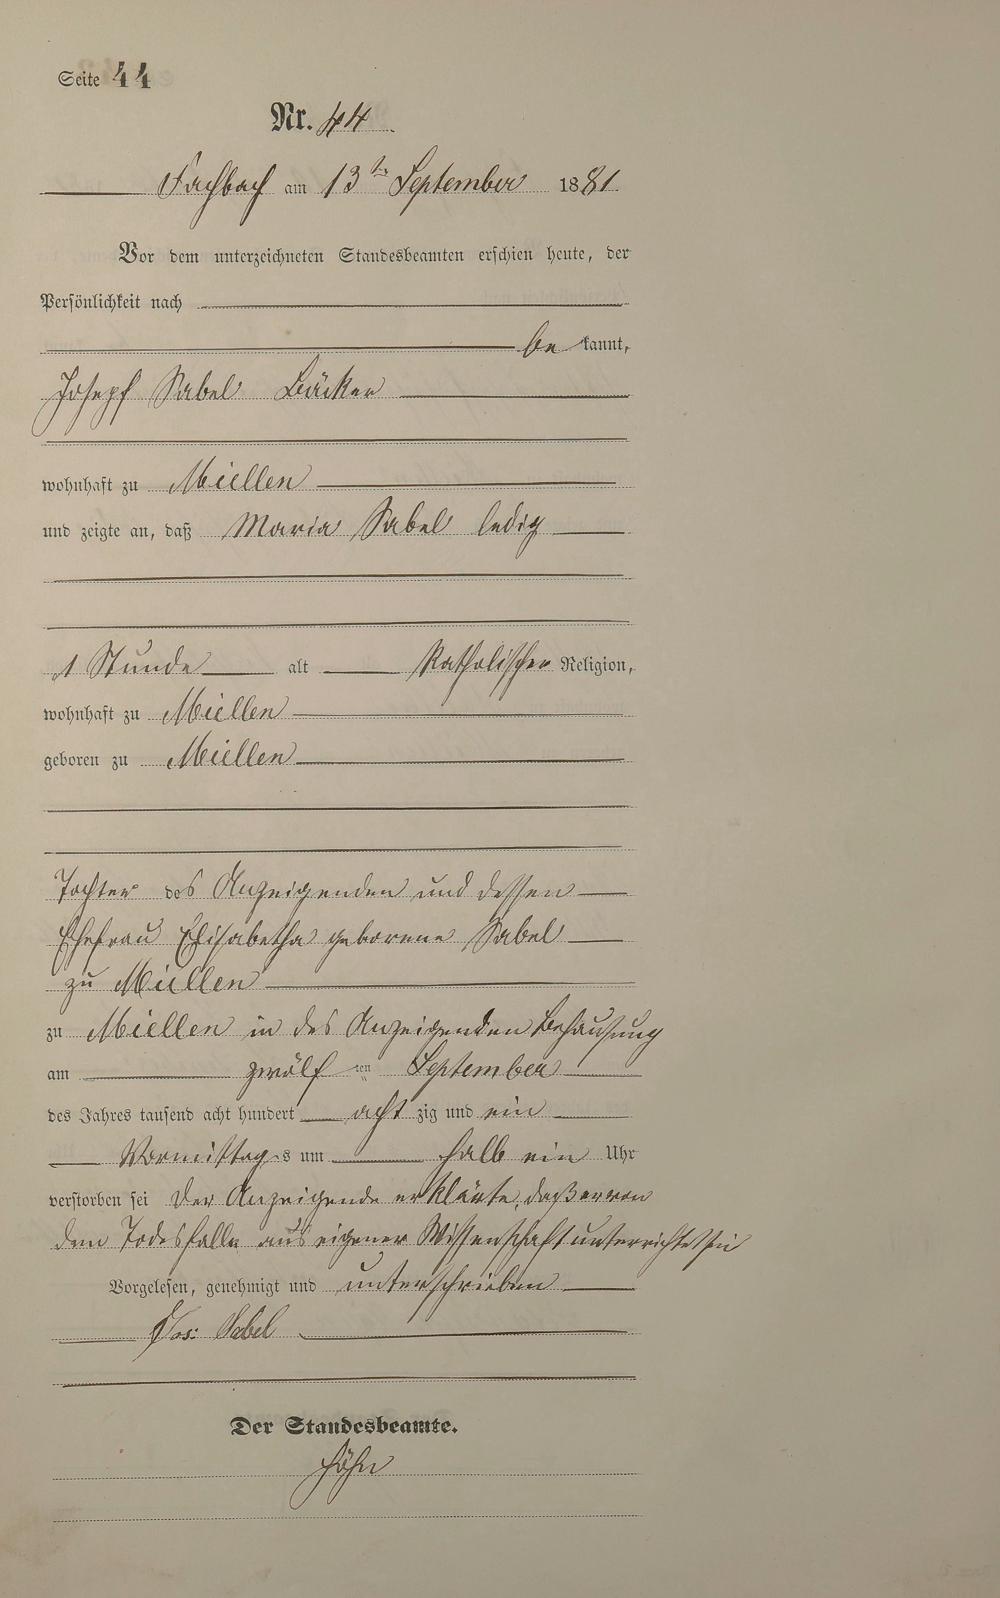 Seite 44
Nr. 44
Fachbach am 13ten September 1881.
Vor dem unterzeichneten Standesbeamten erschien heute, der
Persönlichkeit nach
bekannt,
Joseph Sabel Bäcker
wohnhaft zu Miellen
und zeigte an, daß Maria Sabel ledig
1 Stunde alt Katholischer Religion,
wohnhaft zu Miellen
geboren zu Miellen
Tochter des Anzeigenden und dessen
Ehefrau Elisabetha geborene Sabel
zu Miellen
zu Miellen in des Anzeigenden Behausung
am zwölften September
des Jahres tausend acht hundert achtzig und ein
Vormittags um halb ein Uhr
verstorben sei Der Anzeigende erklärte, daß er von
dem Todesfalle aus eigener Wissenschaft unterrichtet sei
Vorgelesen, genehmigt und unterschrieben
Jos: Sabel
Der Standesbeamte.
Höhn